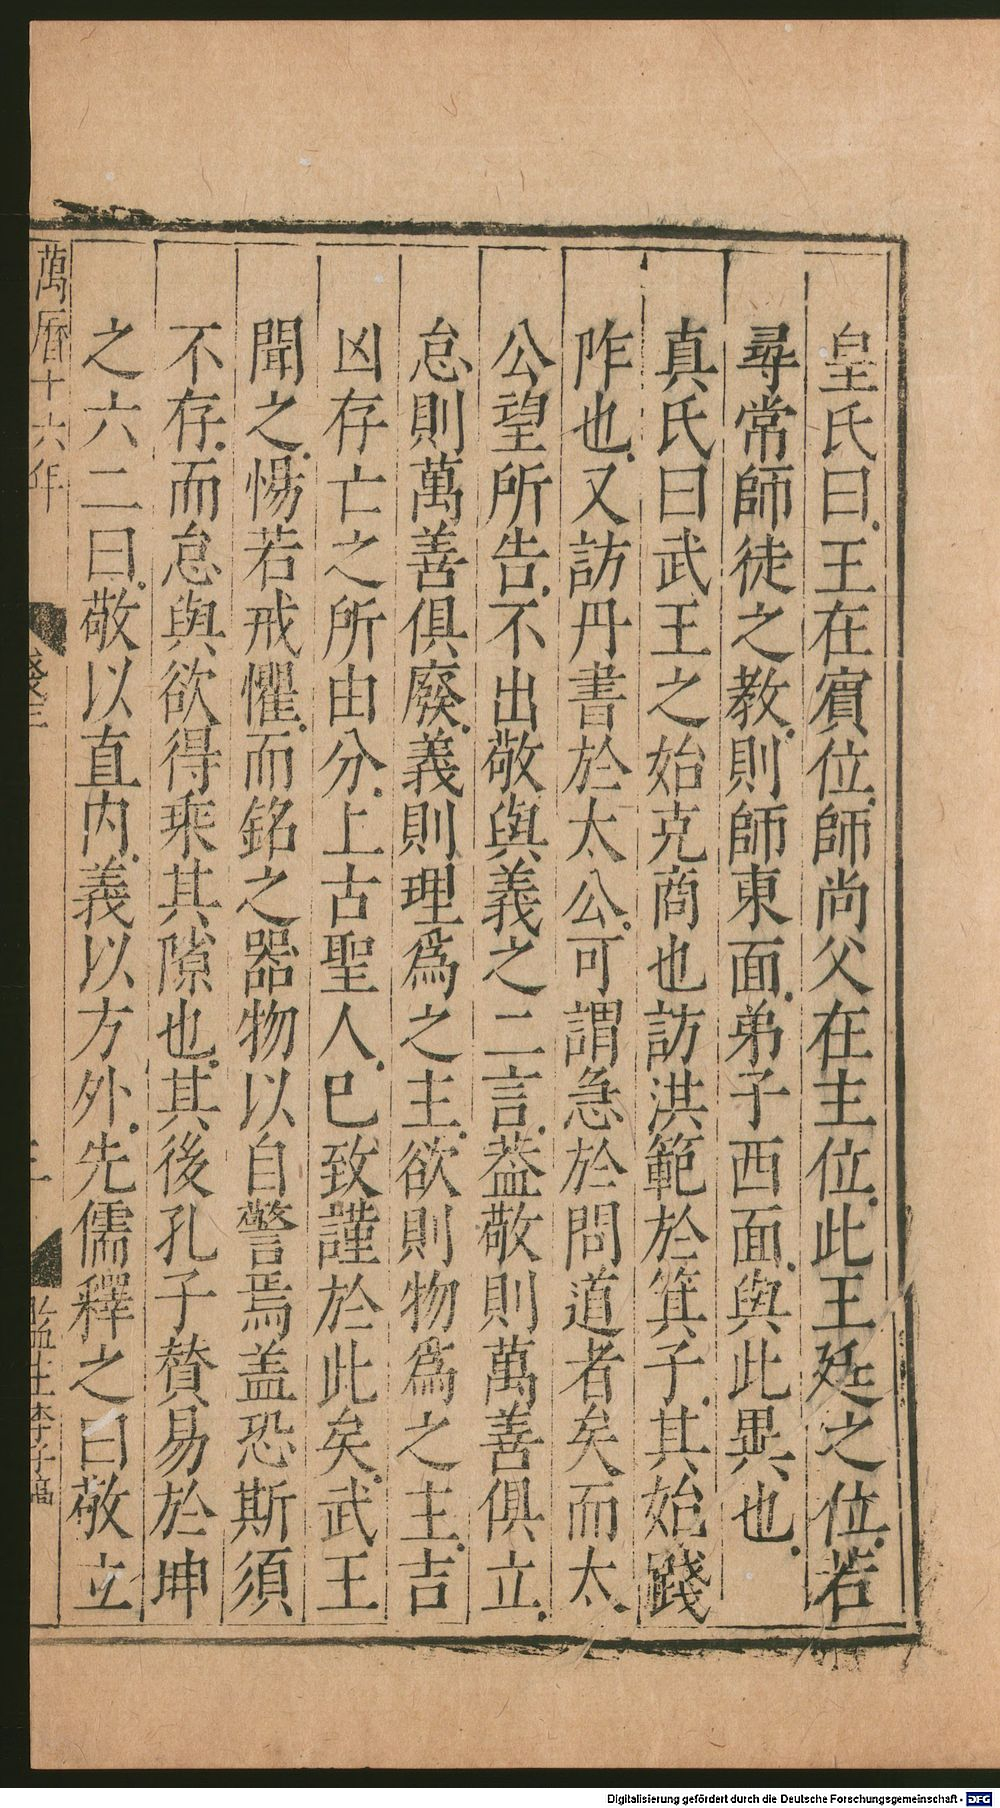 皇氏曰.王在賔位.師尚父在主位.此王廷之位.若
尋常師徒之教.則師東面.弟子西面.與此異也.
真氏曰武王之始克商也訪洪範於箕子.其始踐
阼也.又訪丹書於太公.可謂急於問道者矣.而太.
公望所告.不出敬與義之二言.葢敬則萬善俱立.
怠則萬善俱廢.義則理爲之主.欲則物爲之主.吉
凶存亡之所由分.上古聖人.已致謹於此矣.武王
聞之.惕若戒懼.而銘之器物以自警焉盖恐斯須
不存.而怠與欲得乘其隙也.其後孔子賛易於坤
之六二曰.敬以直内.義以方外.先儒釋之曰敬立
萬曆十六年
監生李
Digitalisierung gefördert durch die Deutsche Forschungsgemeinschaft - DFG